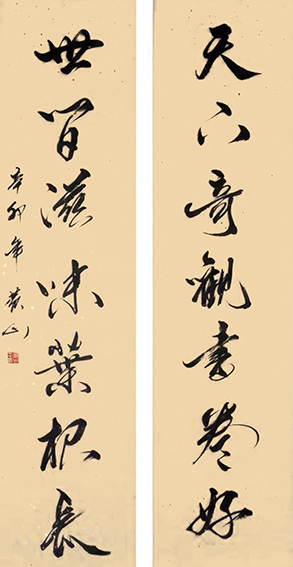 天下奇觀書卷好
世間滋味菜根長
辛卯年黄山